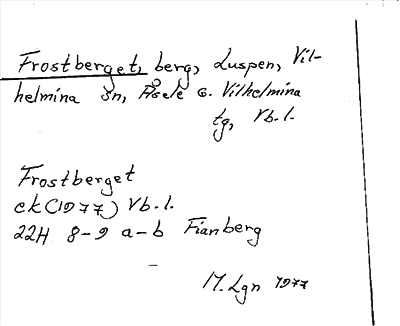 Frostberget, berg, Luspen, Vil-
helmina sn, Åsele o. Vilhelmina
tg, Vb.l.
Frostberget
ek (1977) Vb.l.
22H 8-9 a-b Fianberg
M. Lgn 1977